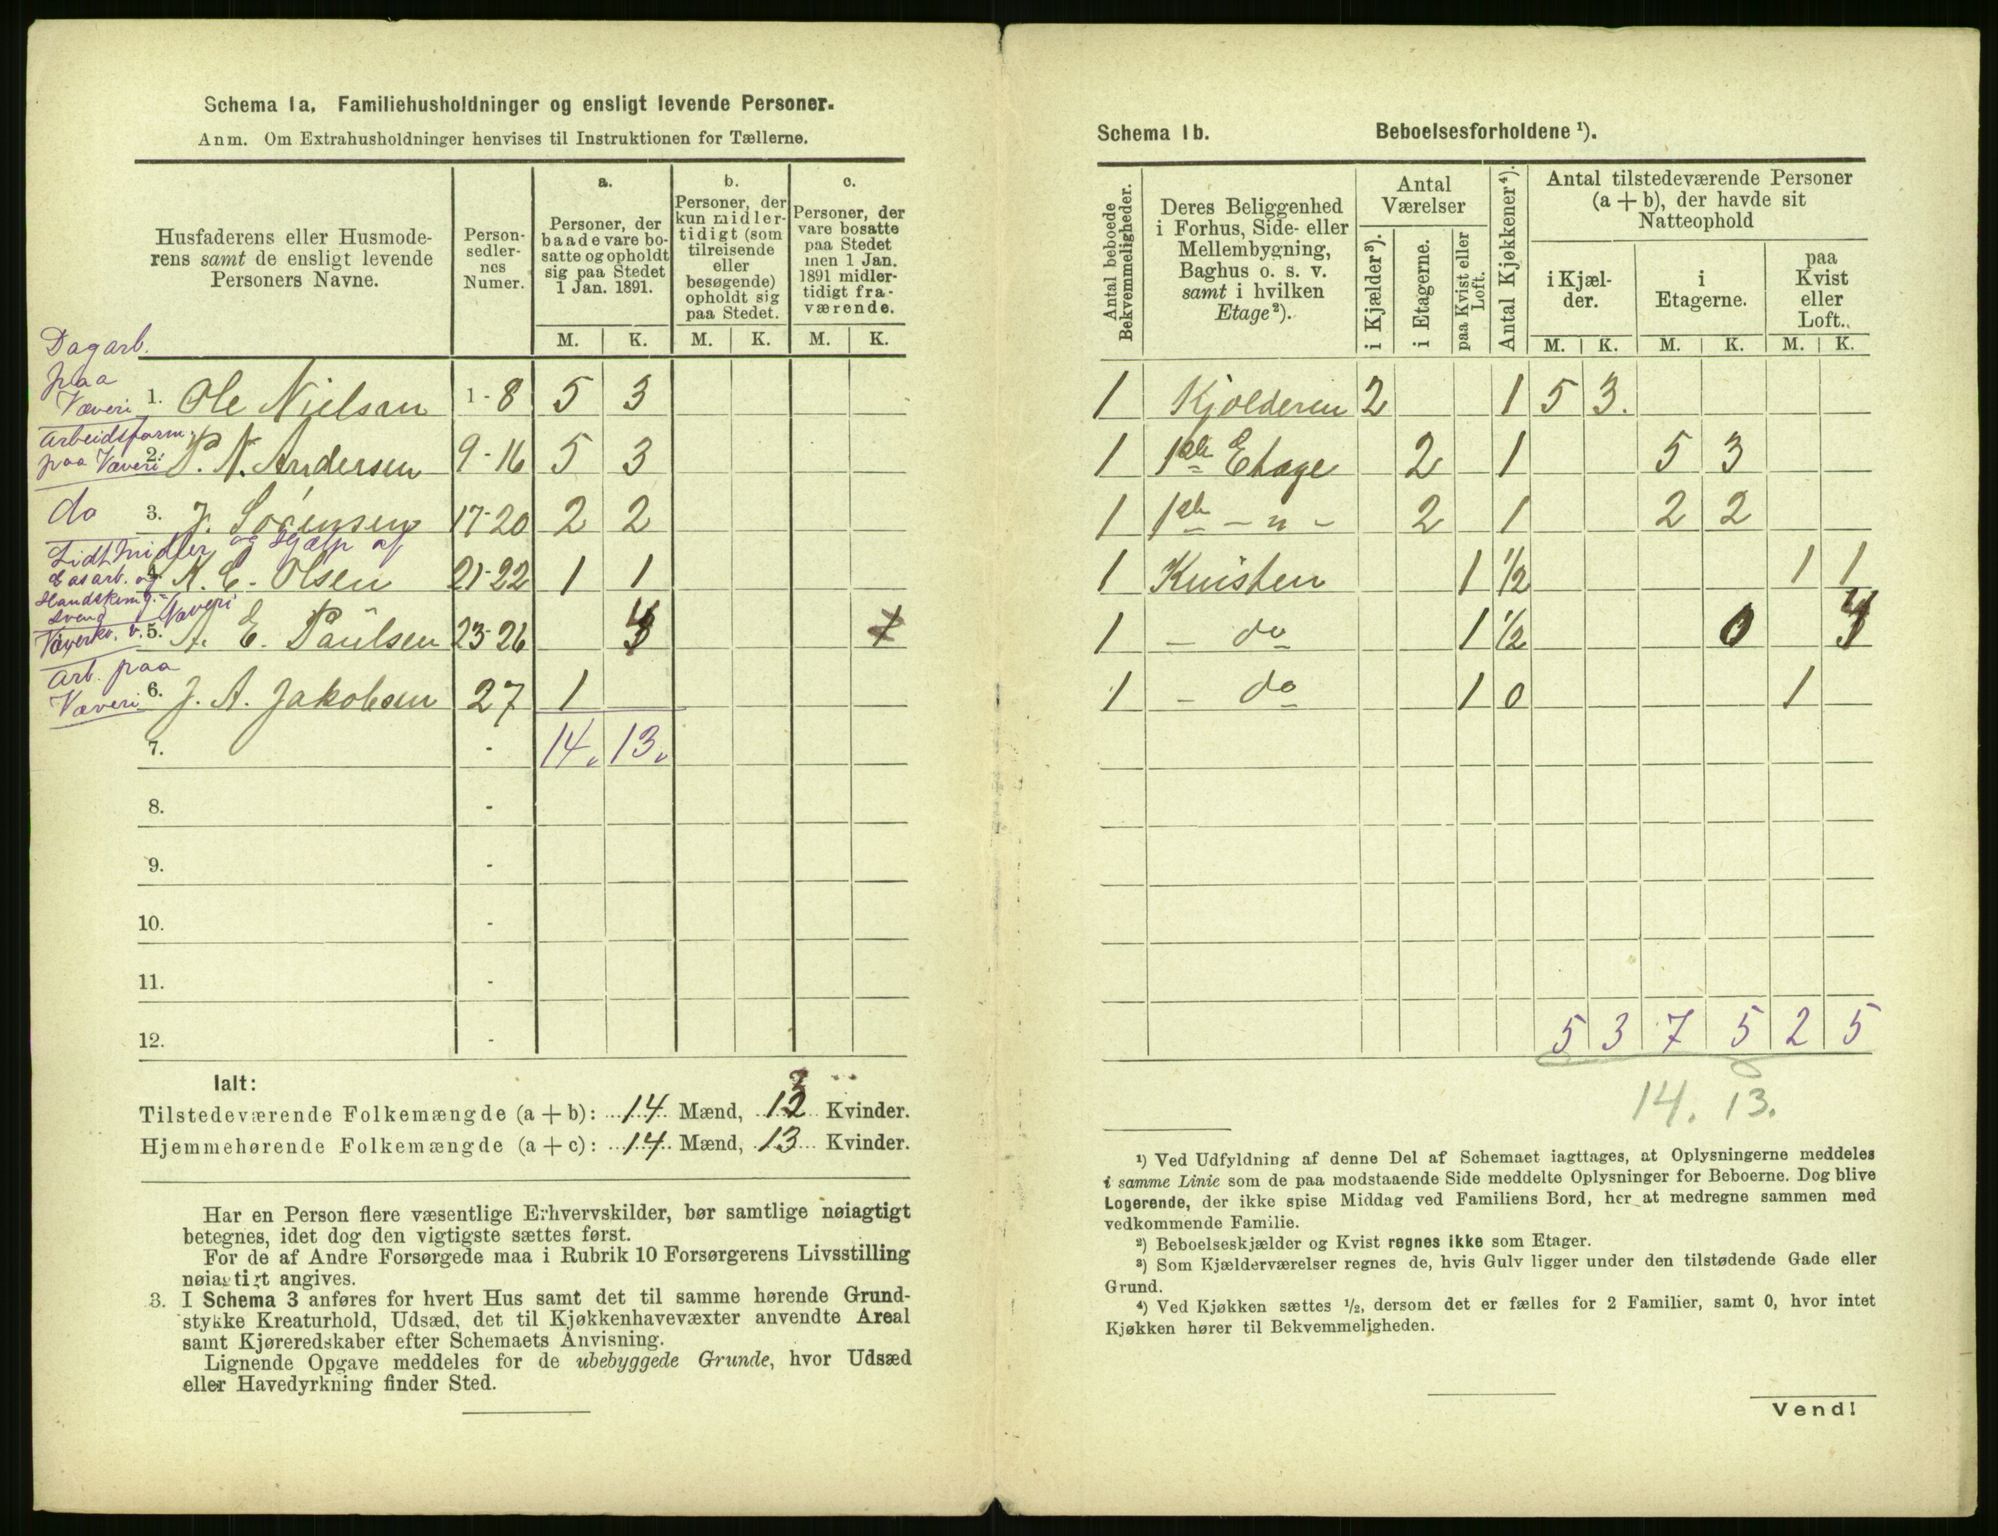 Schema 1a. Familiehusholdninger og ensligt levende Personer.
Anm. Om Extrahusholdninger henvises til Instruktionen for Tællerne.
Husfaderens eller Husmoderens samt de ensligt levende Personers Navne.
Personsedlernes Numer.
a. Personer, der baade vare bosatte og opholdt sig paa Stedet 1 Jan. 1891.
b. Personer, der kun midlertidigt (som tilreisende eller besøgende) opholdt sig paa Stedet.
c. Personer, der vare bosatte paa Stedet men 1 Jan. 1891 midlertidigt fraværende.
M. K. M. K. M. K.
Dagarb. paa Væveri
1. Ole Nielsen 1-8 5 3
Arbeidsform. paa Væveri
2. P. N. Andersen 9-16 5 3
do
3. J. Sørensen 17-20 2 2
Lidt Midler og Hjælp af
4. K. E. Olsen 21-22 1 1
Væverko. v. Væveri
5. A. E. Paulsen 23-26 4 1
Arb. paa Væveri
6. J. A. Jakobsen 27 1
7. - 14. 13.
8. -
9. -
10. -
11. -
12. -
Ialt:
Tilstedeværende Folkemængde (a + b): 14 Mænd, 13 Kvinder.
Hjemmehørende Folkemængde (a + c): 14 Mænd, 13 Kvinder.
Har en Person flere væsentlige Erhvervskilder, bør samtlige nøiagtigt
betegnes, idet dog den vigtigste sættes først.
For de af Andre Forsørgede maa i Rubrik 10 Forsørgerens Livsstilling
nøiagtigt angives.
3. I Schema 3 anføres for hvert Hus samt det til samme hørende Grund-
stykke Kreaturhold, Udsæd, det til Kjøkkenhavevæxter anvendte Areal
samt Kjøreredskaber efter Schemaets Anvisning.
Lignende Opgave meddeles for de ubebyggede Grunde, hvor Udsæd
eller Havedyrkning finder Sted.
Schema 1b. Beboelsesforholdene ¹).
Antal beboede Bekvemmeligheder.
Deres Beliggenhed i Forhus, Side- eller Mellembygning, Baghus o. s. v. samt i hvilken Etage²).
Antal Værelser
i Kjælder³).
i Etagerne.
paa Kvist eller Loft.
Antal Kjøkkener⁴).
Antal tilstedeværende Personer (a + b), der havde sit Natteophold
i Kjælder.
i Etagerne.
paa Kvist eller Loft.
M. K. M. K. M. K.
1 Kjolderen 2 1 5 3.
1 1ste Etage 2 1 5 3
1 1ste - " - 2 1 2 2
1 Kvisten 1 1/2 1 1
1 - do 1 1/2 0 4
1 - do 1 0 1
5 3 7 5 2 5
14. 13.
¹) Ved Udfyldning af denne Del af Schemaet iagttages, at Oplysningerne meddeles
i samme Linie som de paa modstaaende Side meddelte Oplysninger for Beboerne. Dog blive
Logerende, der ikke spise Middag ved Familiens Bord, her at medregne sammen med
vedkommende Familie.
²) Beboelseskjælder og Kvist regnes ikke som Etager.
³) Som Kjælderværelser regnes de, hvis Gulv ligger under den tilstødende Gade eller
Grund.
⁴) Ved Kjøkken sættes ¹/₂, dersom det er fælles for 2 Familier, samt 0, hvor intet
Kjøkken hører til Bekvemmeligheden.
Vend!